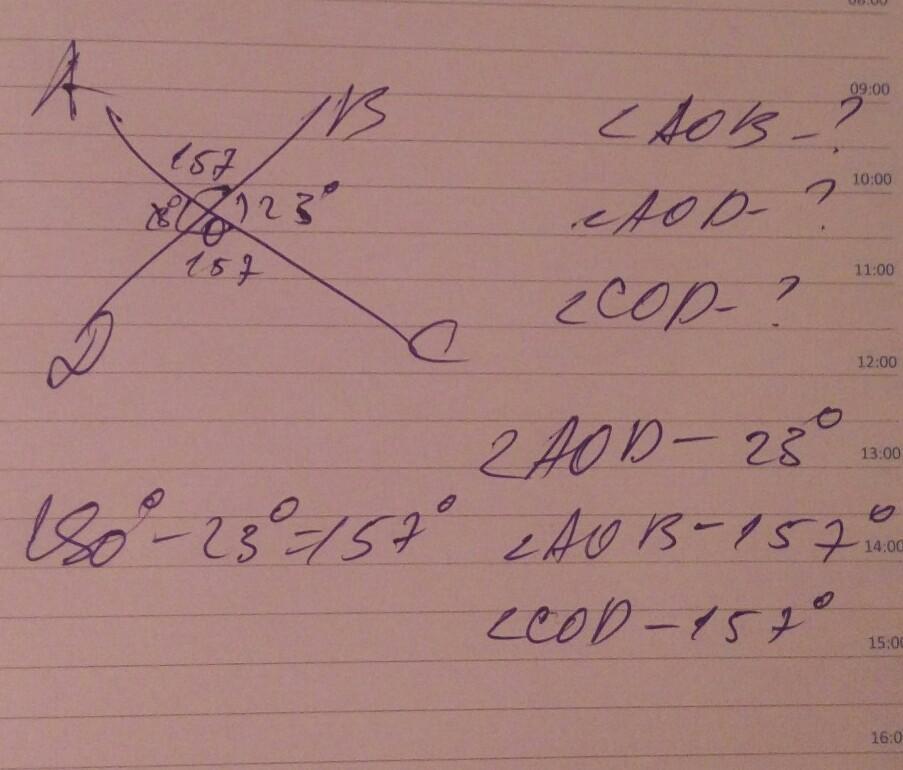 08:00
A
B
157
23°
O
157
D
C
∠AOB-?
∠AOD-?
∠COD-?
∠AOD-23°
180°-23°=157°
∠AOB-157°
∠COD-157°
09:00
10:00
11:00
12:00
13:00
14:00
15:00
16:0